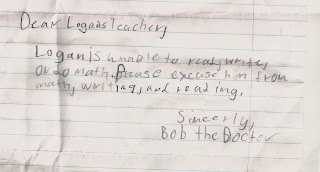 Dear Logans Teacher,
Logan is unable to read, write,
or do math. Pleuse excuse him from
math, writing, and reading.
Sincerly,
Bob the Doctor